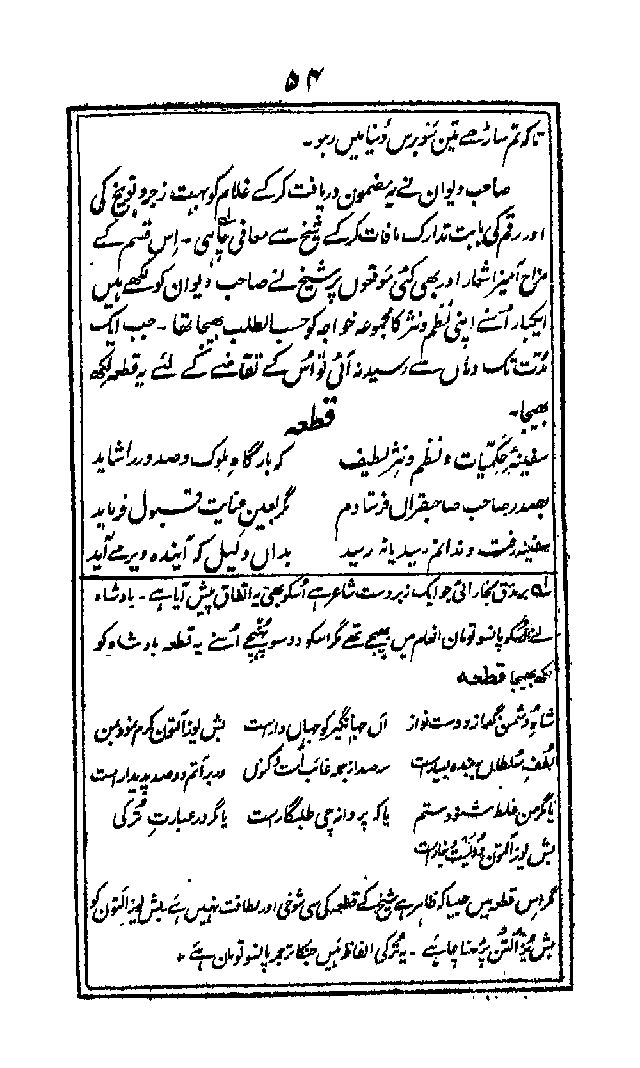 ۵۴
تاکہ تم ساڑھے تین سو برس دُنیا میں رہو۔
صاحب دیوان نے یہ مضمون دریافت کرکے غلام کو بہت زجر و توبیخ کی
اور رقم کی بابت تدارک مافات کرکے شیخ سے معافی چاہی۔ اِس قسم کے
مزاح آمیز اشعار اور بھی کئی موقعوں پر شیخ نے صاحب دیوان کو لکھے ہیں
ایکبار اُسنے اپنی نظم و نثر کا مجموعہ خواجہ کو حسب الطلب بھیجا تھا۔ جب ایک
مُدّت تک وہاں سے رسید نہ آئی تو اُس کے تقاضے کے لئے یہ قطعہ لکھ
بھیجا۔
قطعہ
سفینۂ حکمیات و نظم و نثرِ لطیف کہ بارگاہِ ملوک و صدور را شاید
بصدر صاحب صاحبقران فرستادم مگر بعینِ عنایت قبول فرماید
سفینہ رفت و ندانم رسید یا نہ رسید بداں دلیل کہ آیندہ دیر مے آید
لہ بخارائی جو ایک زبردست شاعر ہے اُسکو بھی یہ اتفاق پیش آیا ہے۔ بادشاہ
نے اُسکو پانسو تومان انعام میں بھیجے تھے مگر اسکو دو سو پہنچے اُسنے یہ قطعہ بادشاہ کو
لکھ بھیجا قطعہ
شاہ دشمن گداز و دوست نواز آں جہانگیر کو جہاں دارست بش یوز آلتون کرم نمود بمن
لطفِ سُلطاں بہ بندہ بسیارست سہ صد از جملہ غائب است و کنوں در براتم دو صد پدیدارست
یا مگر من غلط شنودستم یا کہ پروانچی طلبگارست یا مگر در عبارتِ تُرکی
بش یوز آلتون دویست دینارست
مگر اس قطعہ میں جیسا کہ ظاہر ہے شیخ کے قطعہ کی سی شوخی اور لطافت نہیں ہے بش یوز التون کو
بش یُوز آلتُون پڑھنا چاہئے۔ یہ تُرکی الفاظ ہیں جنکا ترجمہ پانسو تومان ہے